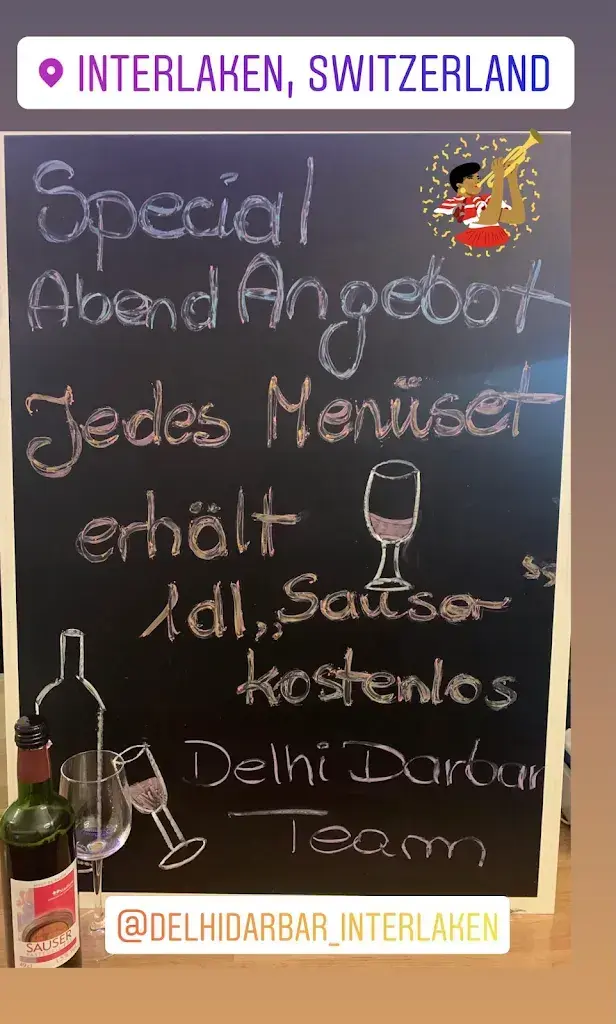 INTERLAKEN, SWITZERLAND
Special
Abend Angebot
Jedes Menüset
erhält
1dl „Sauser"
kostenlos
Delhi Darbar
Team
SAUSER
@DELHIDARBAR_INTERLAKEN